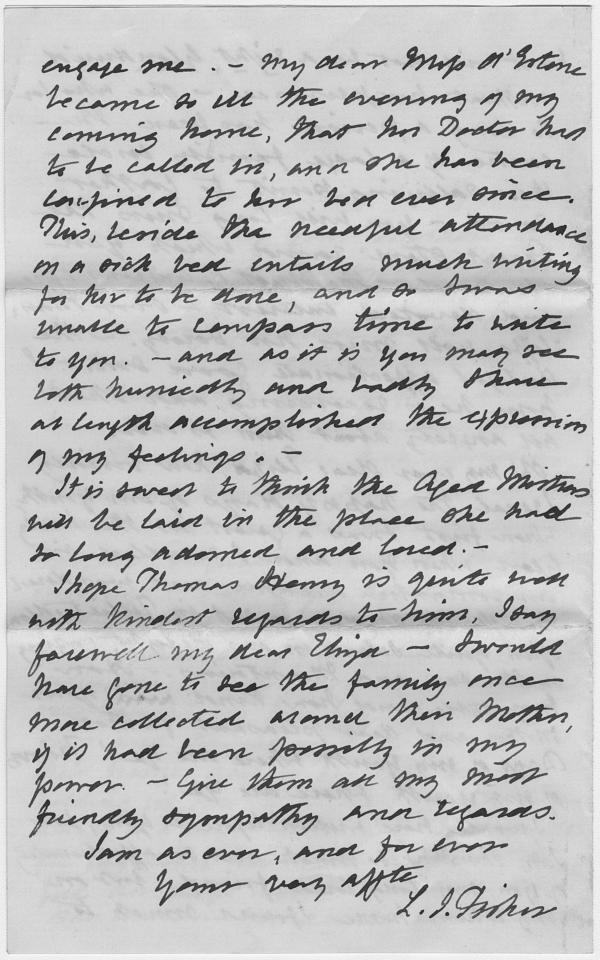 engage me . – My dear Miss d'Estene
became so ill the evening of my
coming home, that her Doctor had
to be called in, and she has been
confined to her bed ever since.
This, beside the needful attendance
on a sick bed entails much writing
for her to be done, and so I was
unable to compass time to write
to you. – and as it is you may see
both hurriedly and badly I have
at length accomplished the expression
of my feelings. –
It is sweet to think the Aged Mother
will be laid in the place she had
so long adorned and loved. –
I hope Thomas Henry is quite well
with kindest regards to him, I say
farewell my dear Eliza – I would
have gone to see the family once
more collected around their Mother,
if it had been possibly in my
power. – Give them all my most
friendly sympathy and regards.
I am as ever, and for ever
Yours very affte
L. I. Fisher